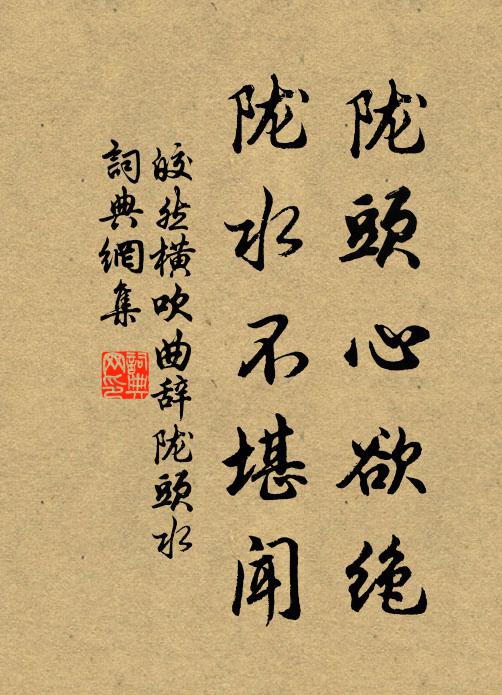 陇頭心欲绝
陇水不堪闻
皎然横吹曲辞陇頭水
詞典網集
詞典
网印